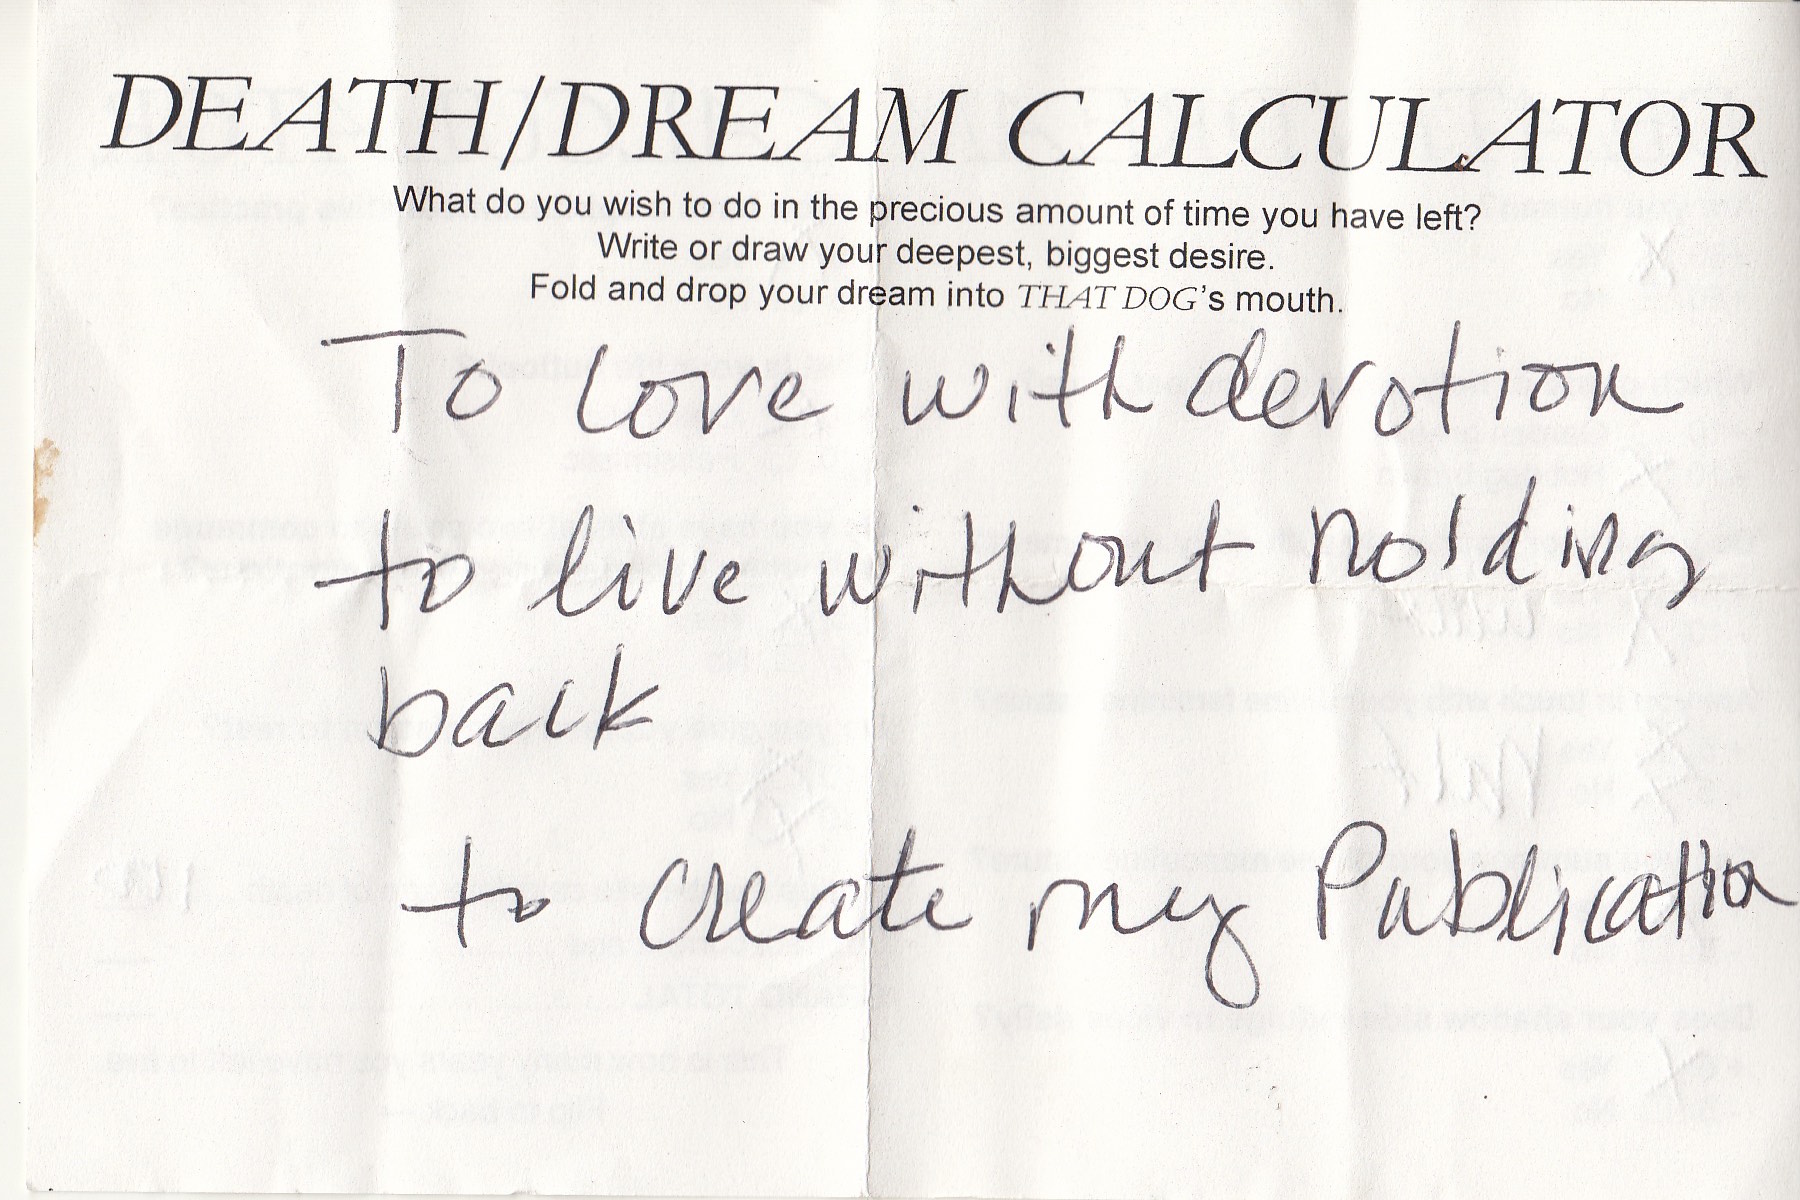 DEATH/DREAM CALCULATOR
What do you wish to do in the precious amount of time you have left?
Write or draw your deepest, biggest desire.
Fold and drop your dream into THAT DOG's mouth.
To love with devotion
to live without holding
back
to create my Publication